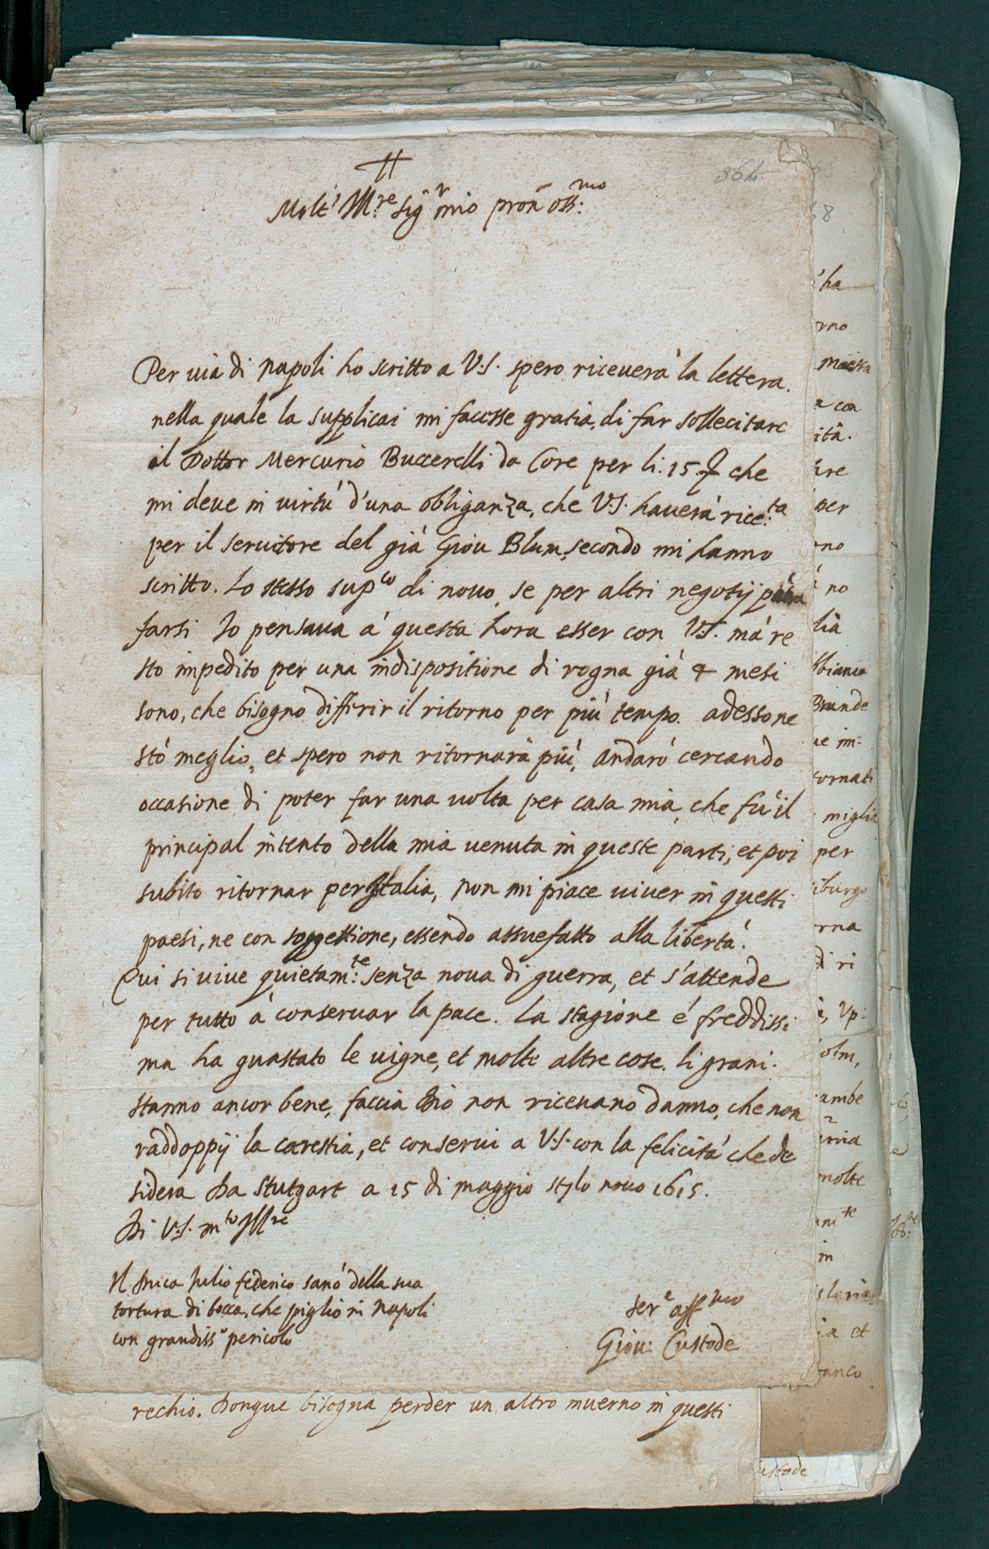 364
Molt' Ill.re Sig.r mio pron oss:mo
Per uia di Napoli ho scritto a V.S. spero riceuerà la lettera.
nella quale la supplicai mi facesse gratia, di far sollecitare
il Dottor Mercurio Buccerelli da Core per li: 15. che
mi deue in uirtu' d'una obliganza, che V.S. hauerà rice:ta
per il seruitore del già Giou Blum, secondo mi hanno
scritto. Lo stesso sup.co di nouo, se per altri negotij
farsi Io pensaua a' questa hora esser con V.S. ma' re
sto impedito per una indispositione di rogna già 4 mesi
sono, che bisogno differir il ritorno per più tempo. adesso ne
stò meglio, et spero non ritornarà più, andarò cercando
occasione di poter far una uolta per casa mia, che fu' il
principal intento della mia uenuta in queste parti, et poi
subito ritornar per Italia, non mi piace uiuer in questi
paesi, ne con soggettione, essendo assuefatto alla libertà.
Qui si uiue quietam:te senza noua di guerra, et s'attende
per tutto à conseruar la pace. La stagione é freddissi
ma ha guastato le uigne, et molte altre cose. li grani
stanno ancor bene, faccia Dio non riceuano danno, che non
raddoppij la carestia, et conserui a V.S. con la felicità che de
sidera Da Stutgart a 15 di maggio stylo nouo 1615.
Di V.S. m.to Ill.re
Il Duca Julio federico sanò della sua
tortura di bocca, che pigliò in Napoli
con grandiss.o pericolo
Ser.e aff.mo
Giou: Custode
rechio. Dongue bisogna perder un altro inuerno in questi
68
ha
con
ità.
per
no
lià
Biunde
ue im-
tornati
miglia
per
iburgo
di ri
Vp:
olm,
ambe
molte
in
et
ustode